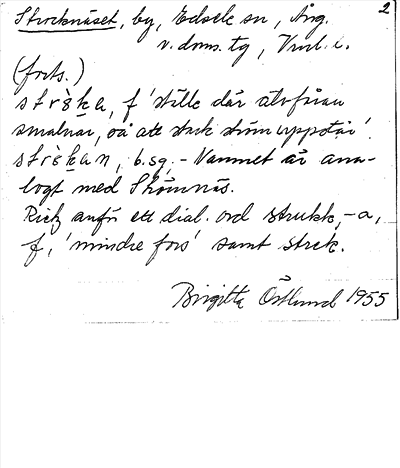 2
Strocknäset, by, Edsele sn, Ång.
v. doms. tg, Vml. l.
(forts.)
strèka, f 'ställe där älvfåran
smalnar, så att stark ström uppstår'.
strèkan, b. sg. - Namnet är ana-
logt med Strömnäs.
Rietz anför ett dial. ord strukk, -a,
f, 'mindre fors' samt strek.
Birgitta Östlund 1955